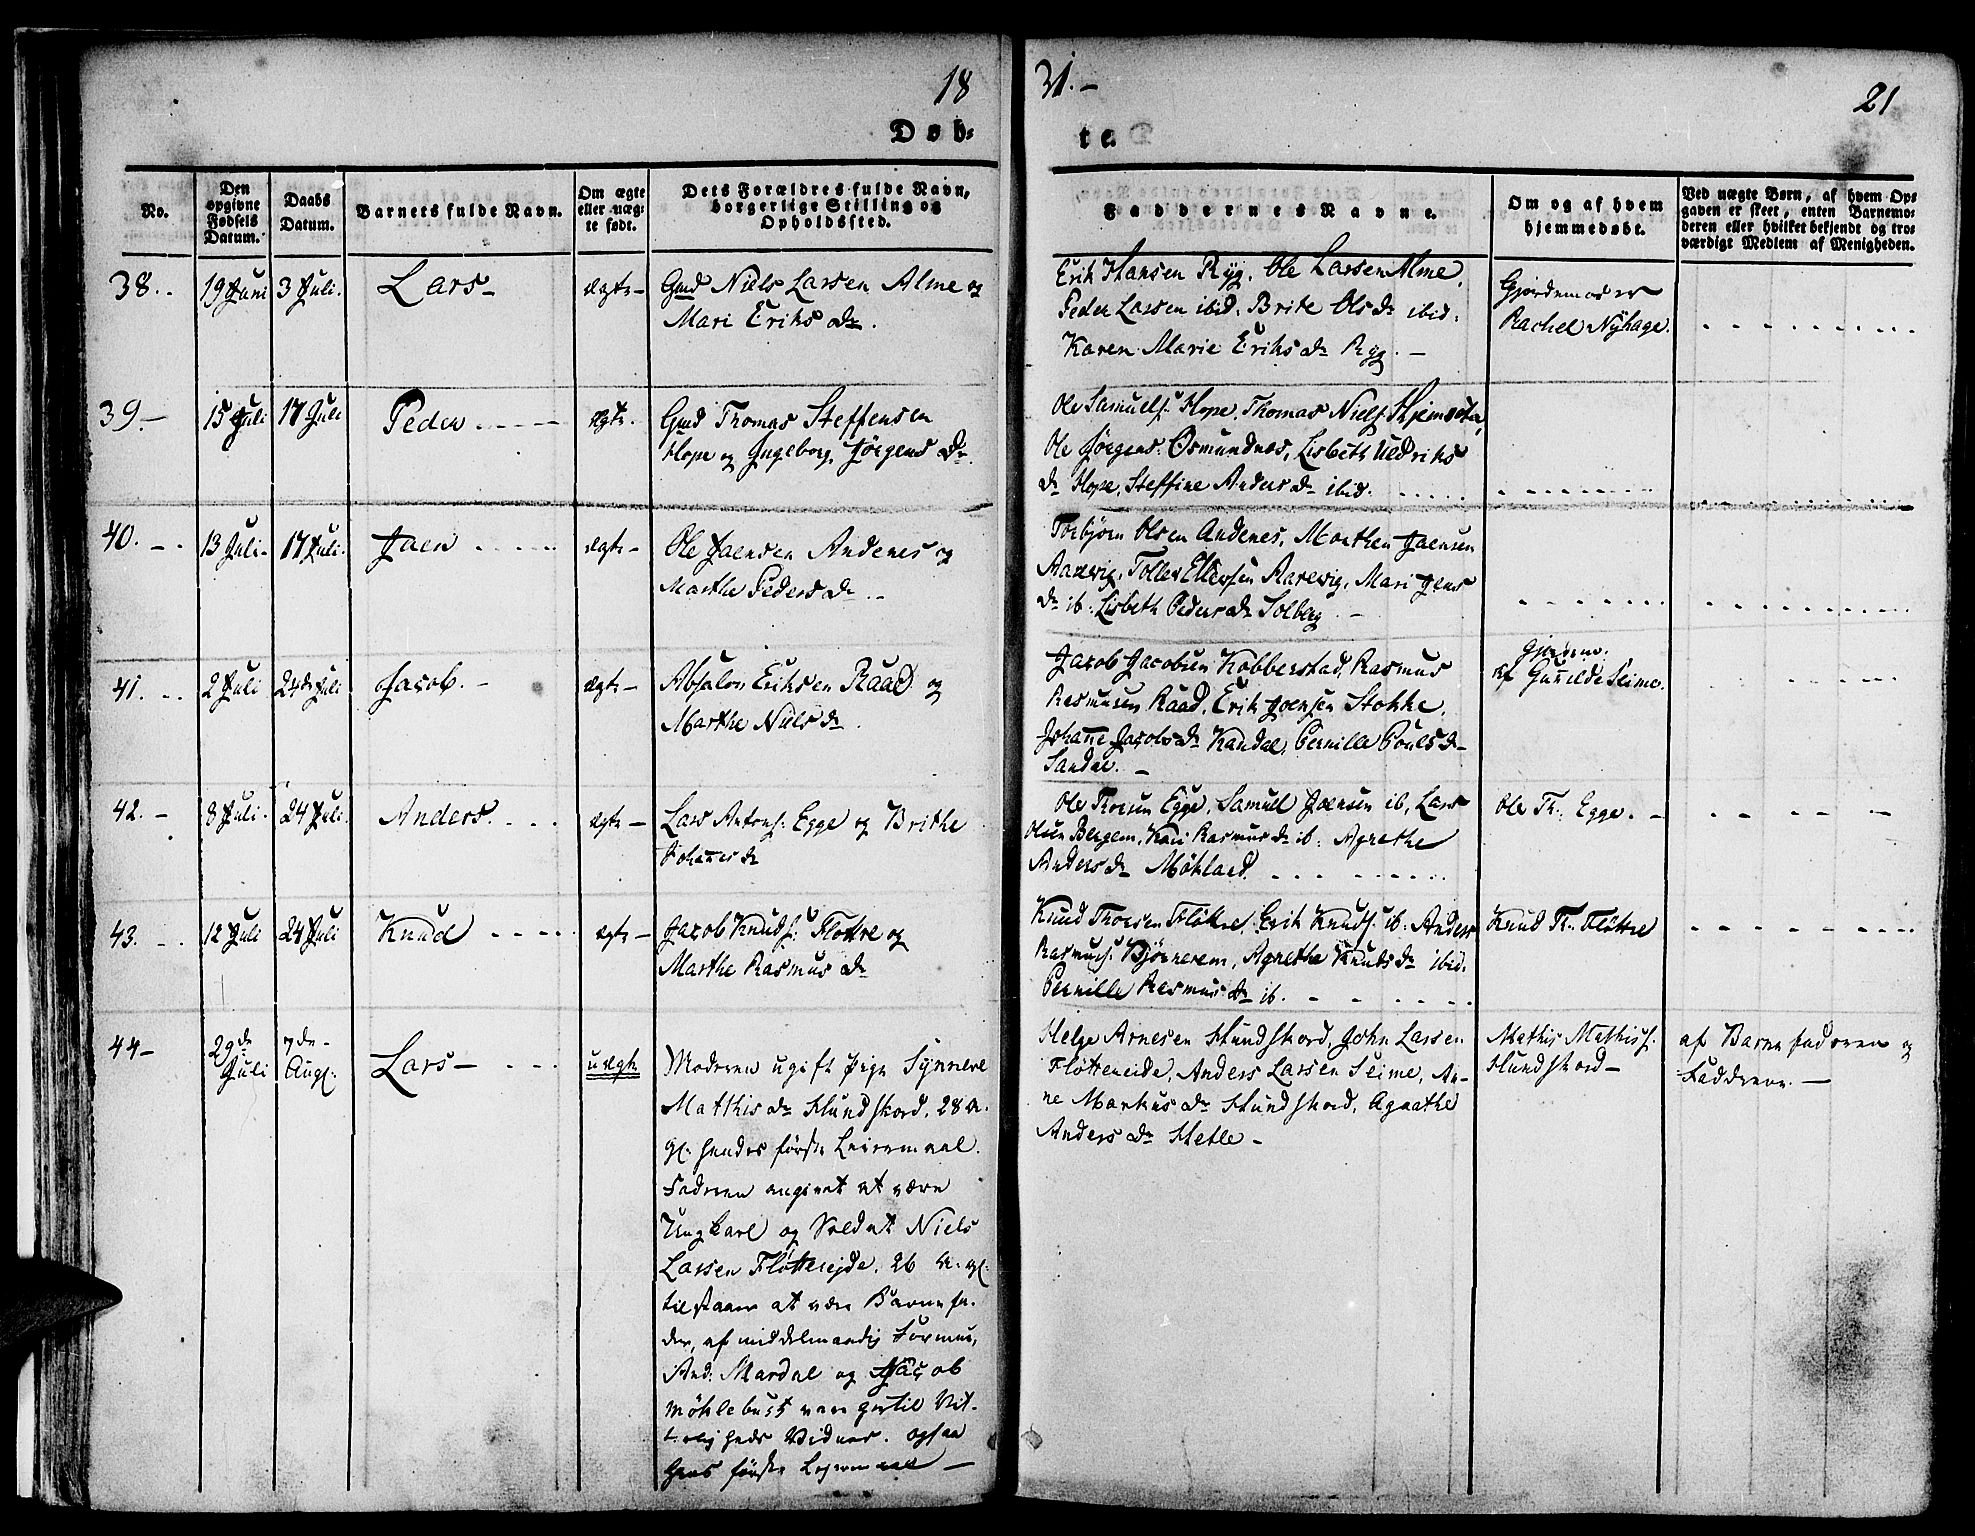 18
31.-
21
Døb-
te.
No.
Den opgivne Fødsels Datum.
Daabs Datum.
Barnets fulde Navn.
Om ægte eller uægte født.
Dets Forældres fulde Navn, borgerlige Stilling og Opholdssted.
Faddernes Navne.
Om og af hvem hjemmedøbt.
Ved uægte Børn, af hvem Opgaven er skeet, enten Barnemoderen eller hvilket bekjendt og troværdigt Medlem af Menigheden.
38.
19 Juni
3 Juli.
Lars-
ægte-
Gmd Niels Larsen Alme og
Mari Eriks Dr.
Erik Hansen Ryg, Ole Larsen Alme,
Peder Larsen ibid. Brite Ols Dr ibid.
Karen Marie Eriks Dr Ryg.-
Gjordemoder
Rachel Nyhage.
39.-
15 Juli
17 Juli
Peder
ægte.
Gmd Thomas Steffensen
Hope og Ingeborg Jørgens Dr.
Ole Samuels. Hope, Thomas Niels. Hjemset,
Ole Jørgens. Osmundnes, Lisbeth Uldriks
Dr Hope, Steffine Anders Dr ibid.
40.
13 Juli-
17 Juli.
Jaen
ægte-
Ole Jaensen Andenes og
Marthe Peders Dr.
Torbjørn Olsen Andenes, Morthen Jaensen
Aarevig, Tollev Ellevsen Aarevig, Mari Jens
Dr ib. Lisbeth Peders Dr Solberg
41.
2 Juli
24de Juli
Jacob.-
ægte-
Absalon Eriksen Raad og
Marthe Niels Dr.
Jacob Jacobsen Kobberstad, Rasmus
Rasmusen Raad, Erik Joensen Stokke,
Johanne Jacobs Dr Kandal, Pernille Pouls Dr
Sandal.-
Gjordem.
af Gunilde Seime.
42.-
8 Juli.
24 Juli.
Anders.
ægte-
Lars Antons. Egge og Brithe
Johannes Dr
Ole Thorsen Egge, Samuel Joensen ib, Lars
Olsen Bergem, Kari Rasmus Dr ib. Agnethe
Anders Dr Møkland.
Ole Th. Egge.-
43.
12 Juli
24 Juli
Knud
ægte-
Jacob Knuds. Fløttre og
Marthe Rasmus Dr
Knud Thorsen Fløttre, Erik Knuds. ib. Anders
Rasmus. Bjønnerem, Agnethe Knuds Dr ibid.
Pernille Rasmus Dr ib.
Knud Th. Fløttre
44-
29de Juli
7de Aug.
Lars-
uægte
Moderen ugift Pige Synneve
Matthis Dr Hundskord, 28 A.
gl. hendes første Leiermaal.
Faderen angivet at være
Ungkarl og Soldat Niels
Larsen Fløtteeide, 26 A. gl.
tilstaaer at være Barnefa-
der, af middelmaadig Formue,
And: Mardal og Jacob
Møklebust vare hertil Vit-
terlighed Vidner. ogsaa
hans første Lejermaal-
Helge Arnesen Hundskord, John Larsen
Fløtteeide, Anders Larsen Seime, An-
ne Markus Dr Hundskord, Agnethe
Anders Dr Hetle-
Mathis Mathis.
Hundskord-
af Barnefaderen og
Fadderne.-